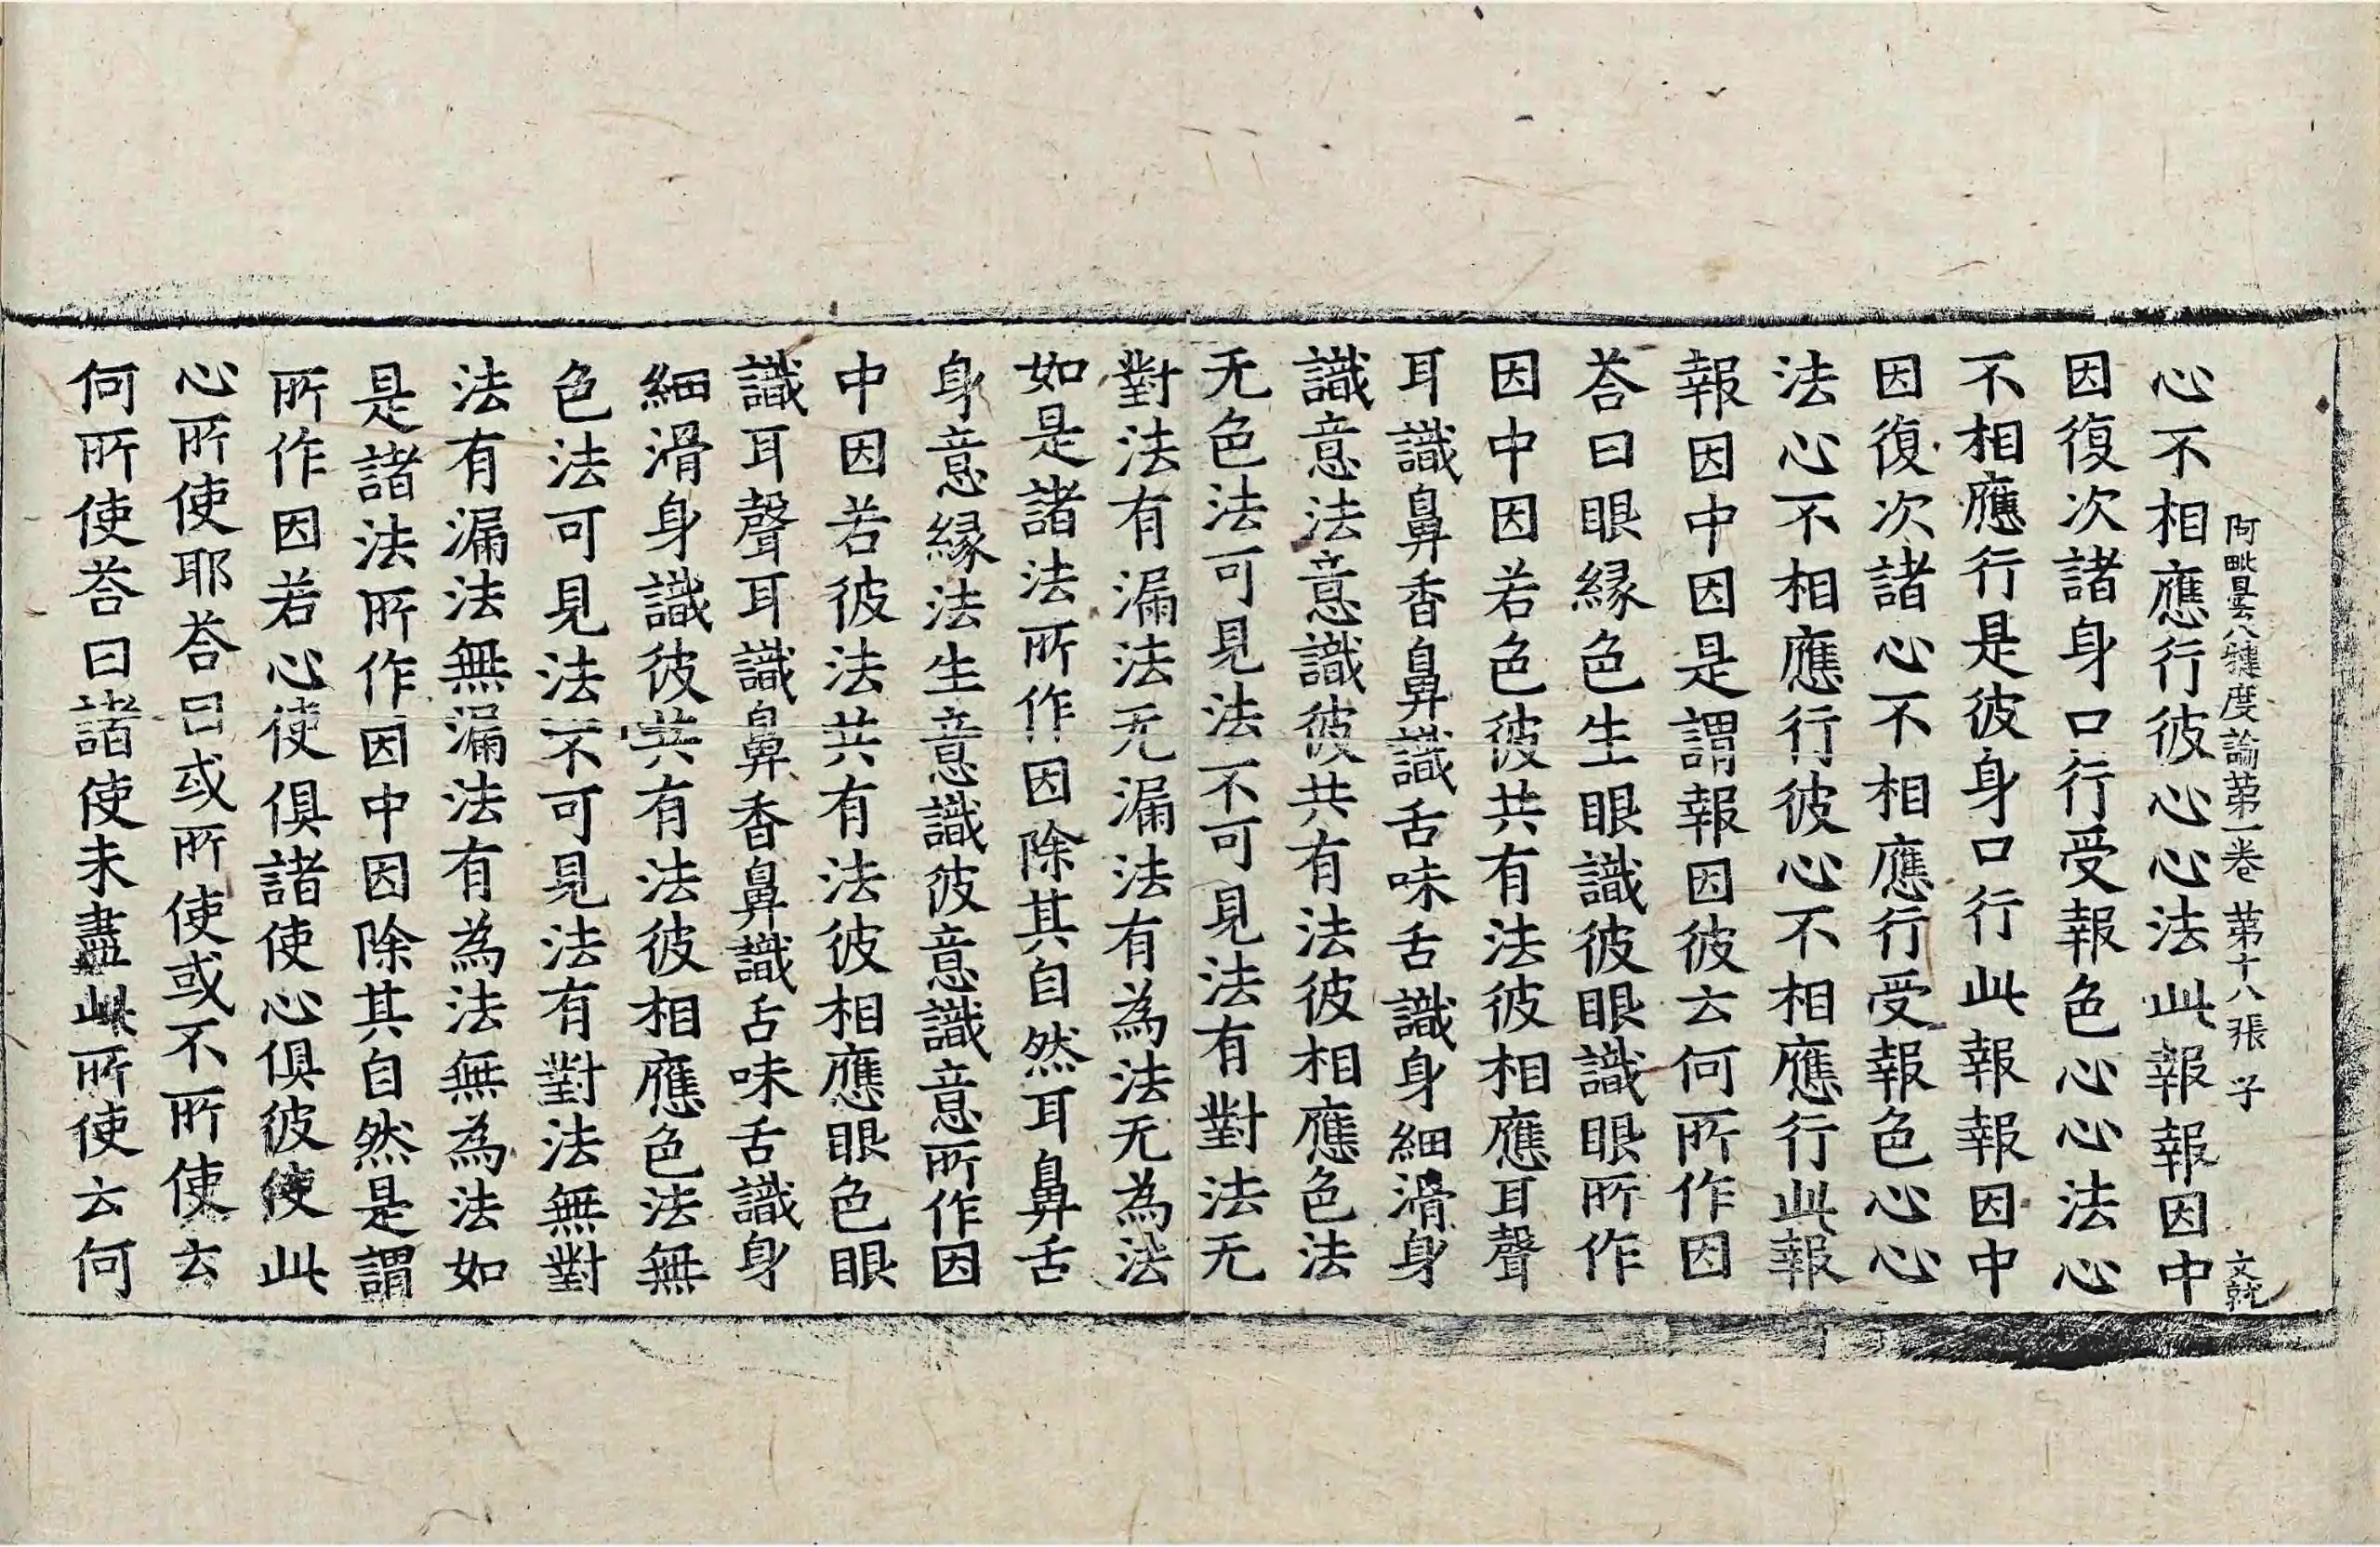 阿毗曇八犍度論第一卷 第十八張 子
心不相應行彼心心法此報報因中
因復次諸身口行受報色心心法心
不相應行是彼身口行此報報因中
因復次諸心不相應行受報色心心
法心不相應行彼心不相應行此報
報因中因是謂報因彼云何所作因
荅曰眼緣色生眼識彼眼識眼所作
因中因若色彼共有法彼相應耳聲
耳識鼻香鼻識舌味舌識身細滑身
識意法意識彼共有法彼相應色法
无色法可見法不可見法有對法无
對法有漏法无漏法有為法无為法
如是諸法所作因除其自然耳鼻舌
身意緣法生意識彼意識意所作因
中因若彼法共有法彼相應眼色眼
識耳聲耳識鼻香鼻識舌味舌識身
細滑身識彼共有法彼相應色法無
色法可見法不可見法有對法無對
法有漏法無漏法有為法無為法如
是諸法所作因中因除其自然是謂
所作因若心使俱諸使心俱彼使此
心所使耶荅曰或所使或不所使云
何所使荅曰諸使未盡此所使云何